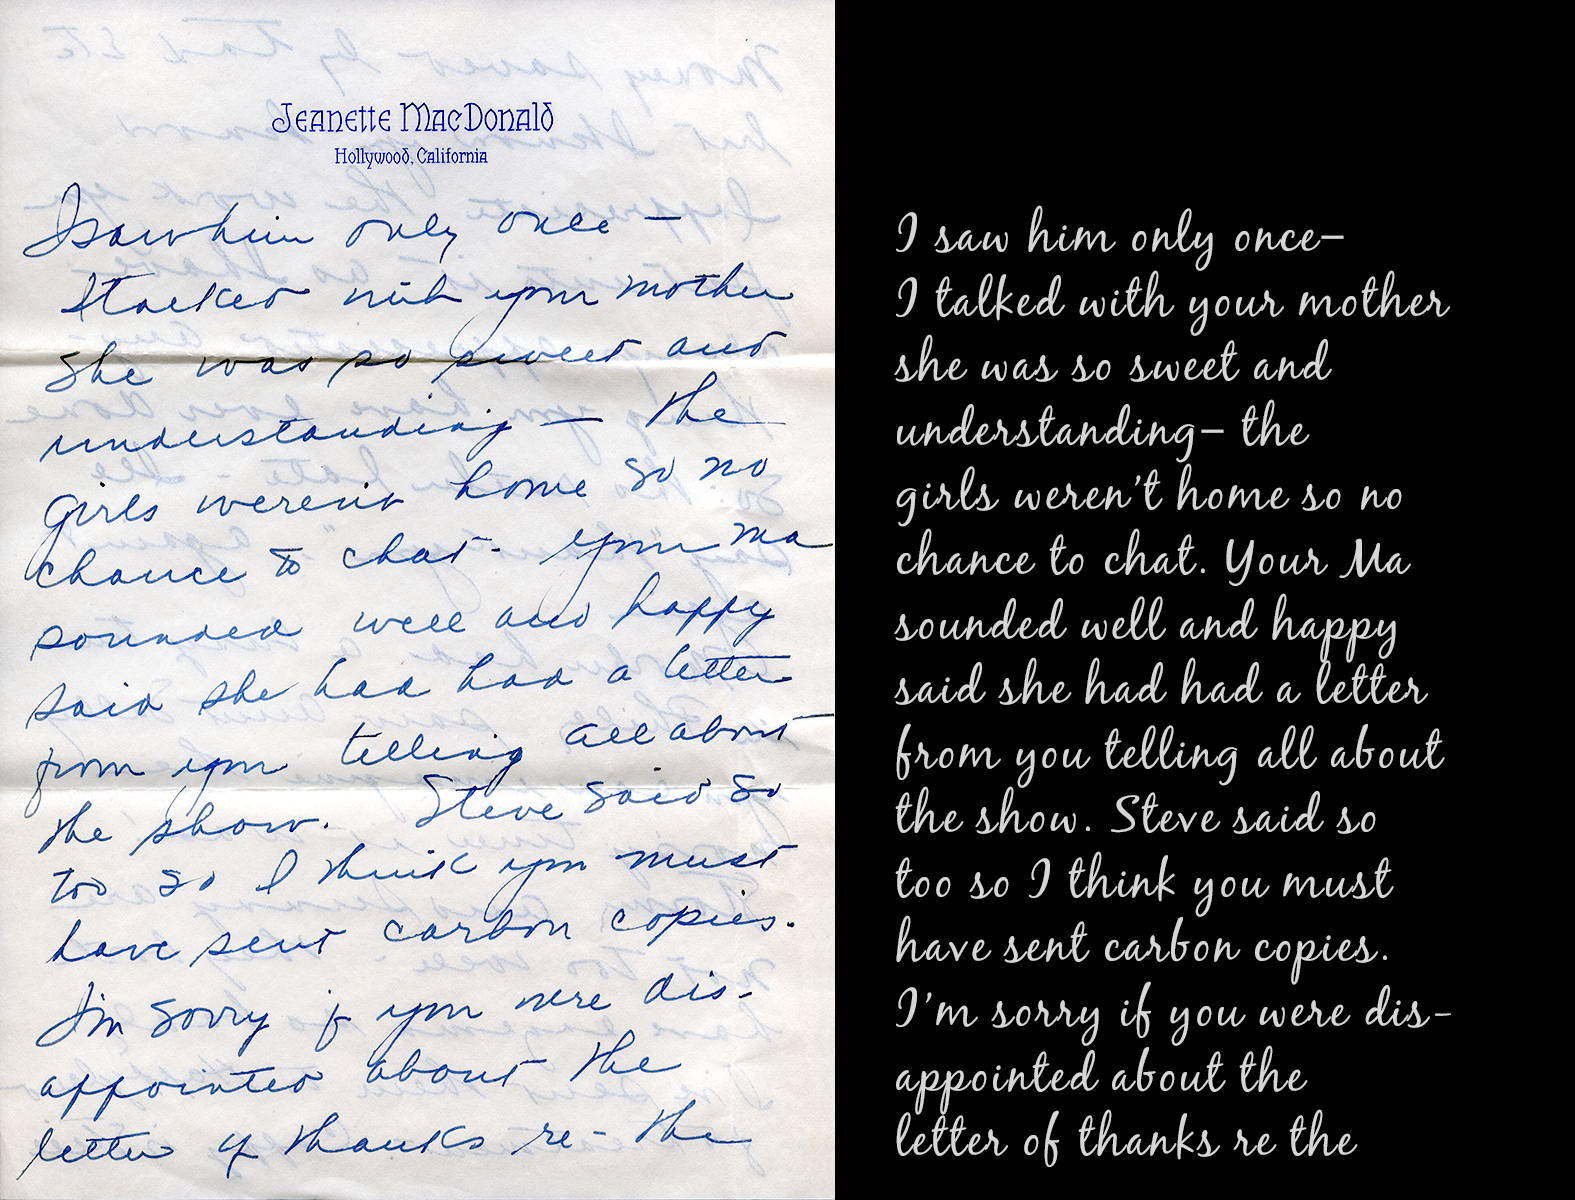 Jeanette MacDonald
Hollywood, California
I saw him only once —
I talked with your mother
she was so sweet and
understanding — the
girls weren't home so no
chance to chat. Your Ma
sounded well and happy
said she had had a letter
from you telling all about
the show. Steve said so
too so I think you must
have sent carbon copies.
I'm sorry if you were dis-
appointed about the
letter of thanks re – the
I saw him only once–
I talked with your mother
she was so sweet and
understanding– the
girls weren't home so no
chance to chat. Your Ma
sounded well and happy
said she had had a letter
from you telling all about
the show. Steve said so
too so I think you must
have sent carbon copies.
I'm sorry if you were dis-
appointed about the
letter of thanks re the